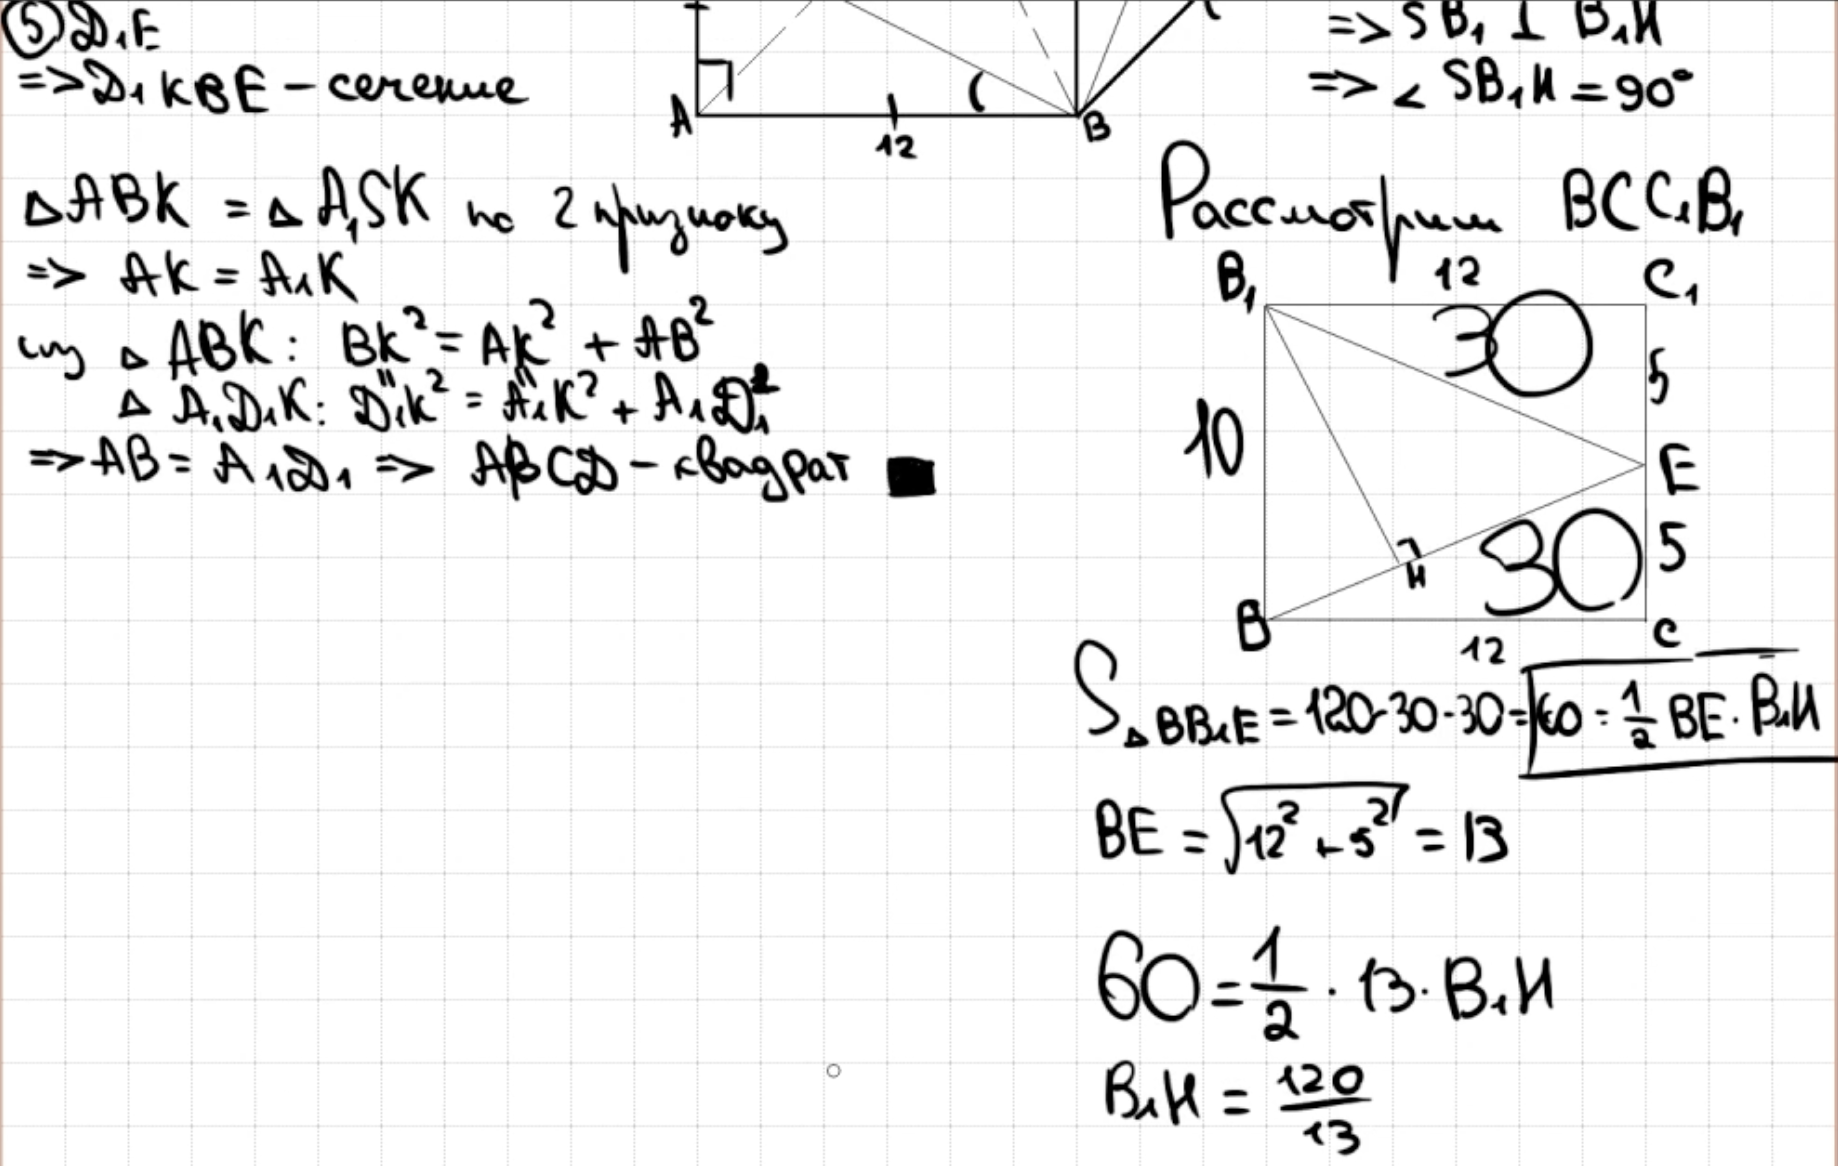 ⑤ D₁E
=> D₁KBE – сечение
ΔABK = ΔA₁SK по 2 признаку
=> AK = A₁K
из ΔABK: BK² = AK² + AB²
" "
ΔA₁D₁K: D₁K² = A₁K² + A₁D₁²
=> AB = A₁D₁ => ABCD – квадрат
A
12
B
=> SB₁ ⊥ B₁H
=> ∠ SB₁H = 90°
Рассмотрим BCC₁B₁
B₁
12
C₁
30
5
10
E
30
5
H
B
12
C
S ΔBB₁E = 120-30-30 = 60 = 1/2 BE · B₁H
BE = √(12² + 5²) = 13
60 = 1/2 · 13 · B₁H
B₁H = 120/13